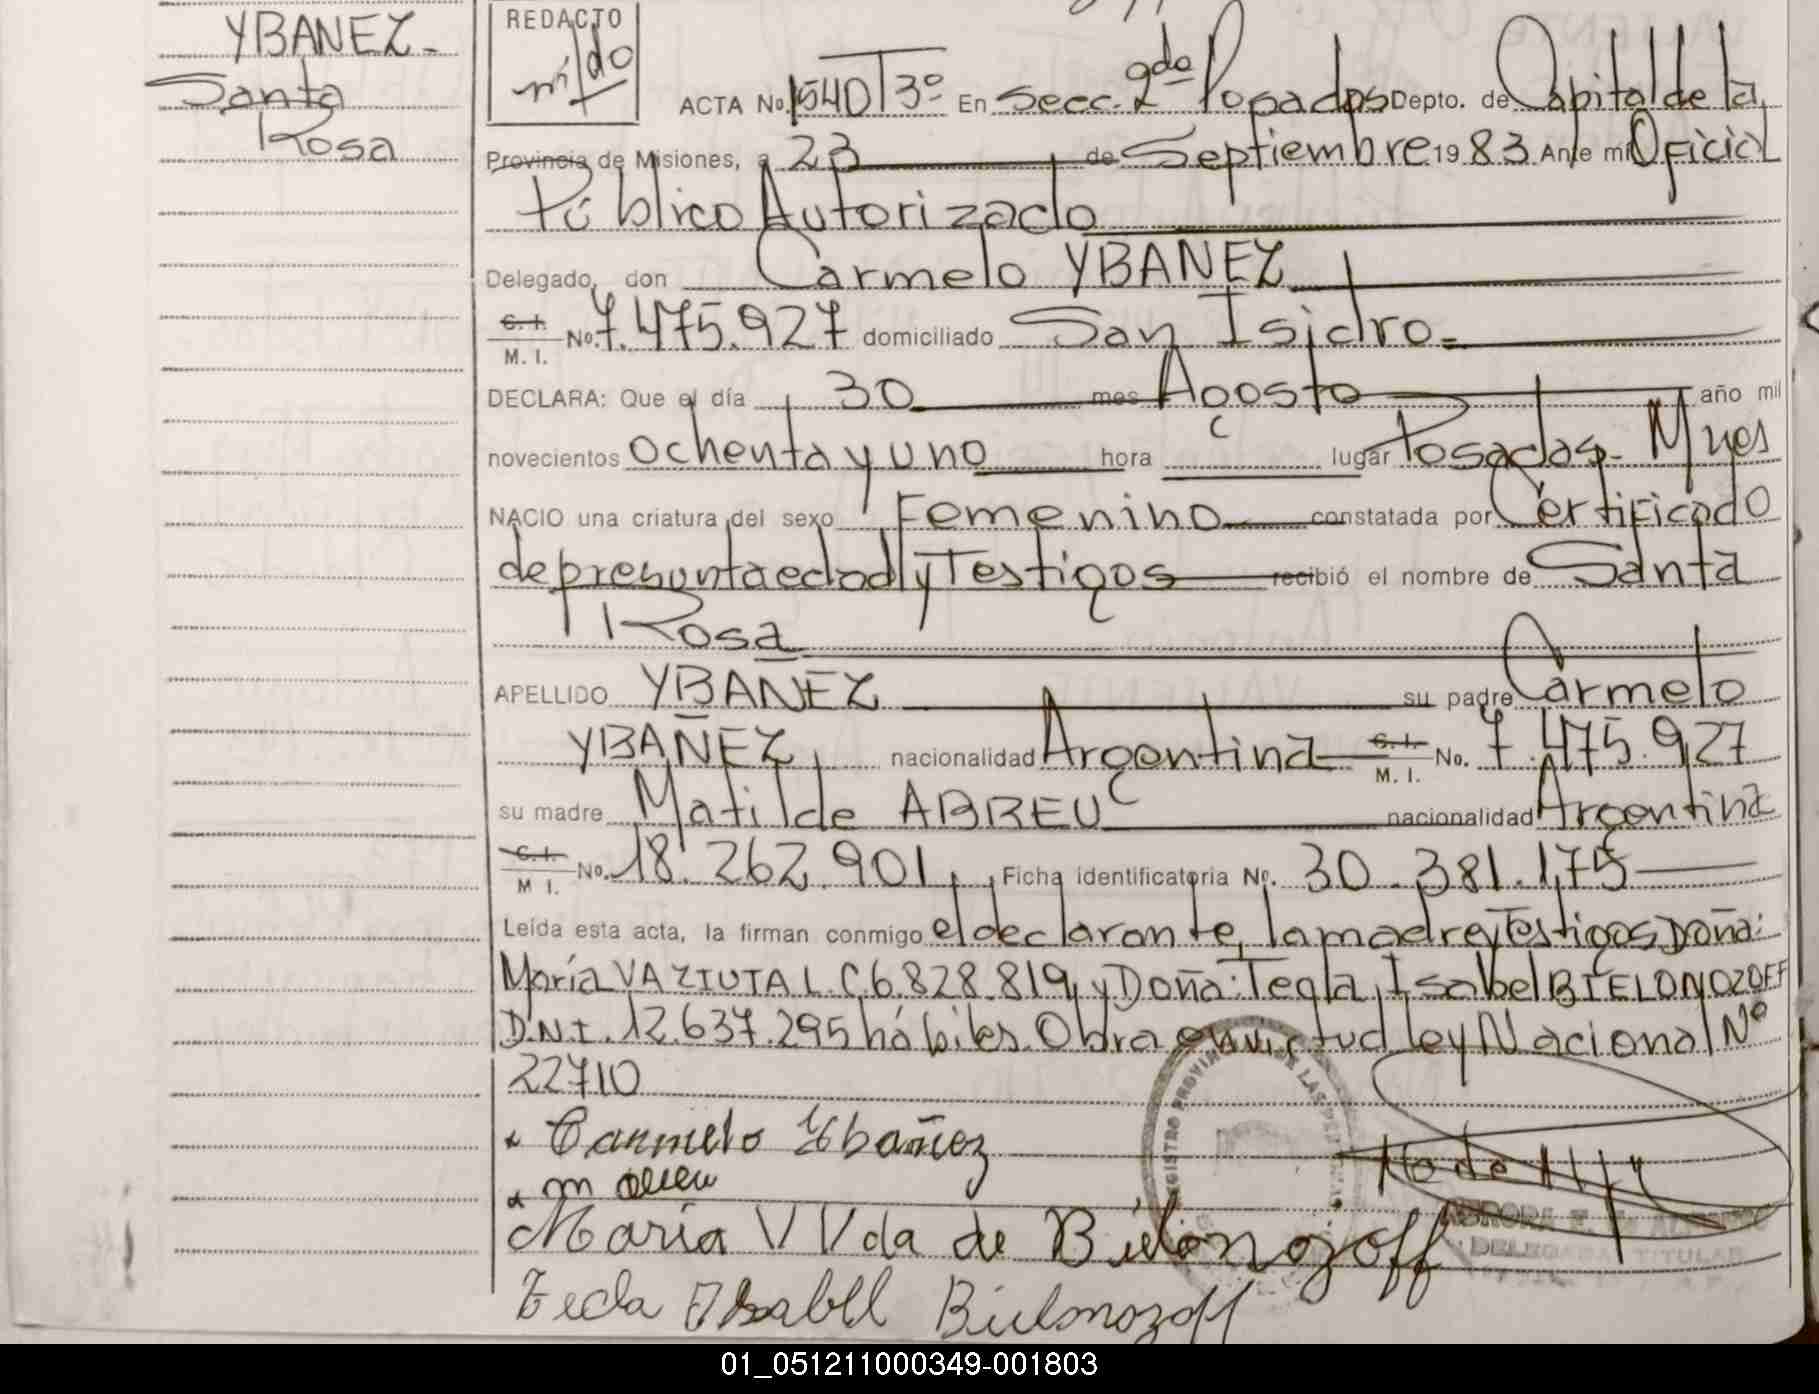 YBAÑEZ-
Santa
Rosa
REDACTO
ACTA No. 1540 T 3º En Secc. 2da Posadas Depto. de Capital de la
Provincia de Misiones, a 23 de Septiembre 1983 Ante mi Oficial
Público Autorizado
Delegado, don Carmelo YBAÑEZ
C. I. M. I. No. 7.475.927 domiciliado San Isidro.
DECLARA: Que el día 30 mes Agosto año mil
novecientos ochenta y uno hora lugar Posadas- Mnes
NACIO una criatura del sexo Femenino constatada por Certificado
de presunta edad y Testigos recibió el nombre de Santa
Rosa
APELLIDO YBAÑEZ su padre Carmelo
YBAÑEZ, nacionalidad Argentina C. I. M. I. No. 7.475.927
su madre Matilde ABREU nacionalidad Argentina
C. I. M I. No. 18.262.901, Ficha identificatoria No. 30.381.175
Leída esta acta, la firman conmigo el declarante, la madre y Testigos Doña:
María VAZIUTA L.C. 6.828.819, y Doña: Tegla Isabel BIELONOZOFF
D.N.I. 12.637.295 hábiles. Obra en virtud ley Nacional Nº
22710
Carmelo Ybañez
María V Vda de Bielonozoff
Tecla Isabel Bielonozoff
DELEGADA TITULAR
01_051211000349-001803